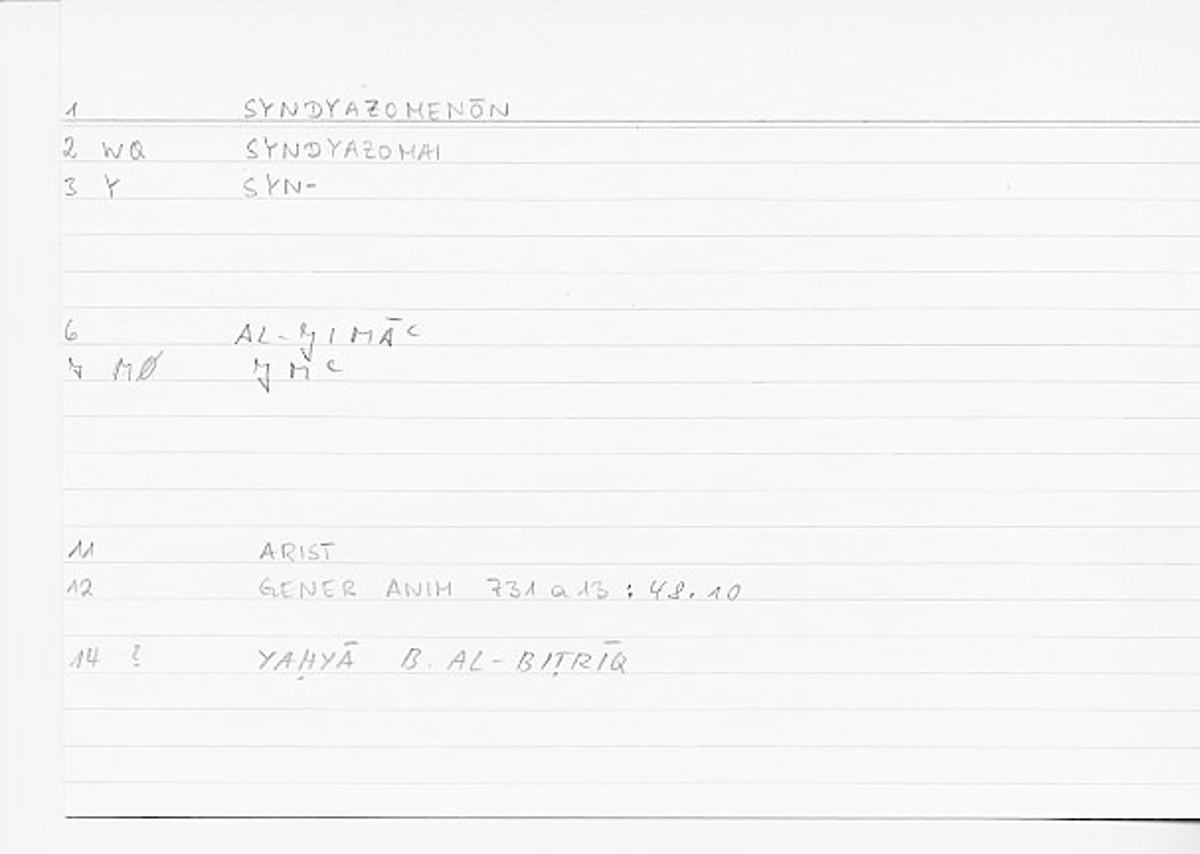 1 SYNDYAZOMENŌN
2 WQ SYNDYAZOMAI
3 Y SYN-
6 AL-ǦIMĀʿ
7 MØ ǦMʿ
11 ARIST
12 GENER ANIM 731 a 13 : 48.10
14 ? YAḤYĀ B. AL-BIṬRĪQ